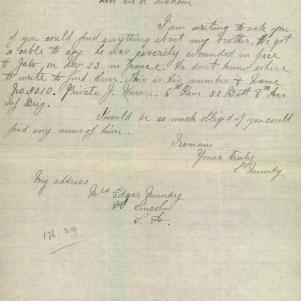 Dear Sir or Madam
I am writing to ask you
if you could find anything about my brother. We got
a cable to say he was severely wounded in face
to Jabs, on Dec 23 in France. We don't know where
to write to find him. This is his number & Name
No 3010. Private J. 6th Rens. 32 Batt 8th Aus
ny Brig.
I would be so much obliged if you could
find any news of him.
I remain
Yours truly
S Mundy
My address
Mrs Edgar Mundy
Pt Lincoln
S. A.
176.29